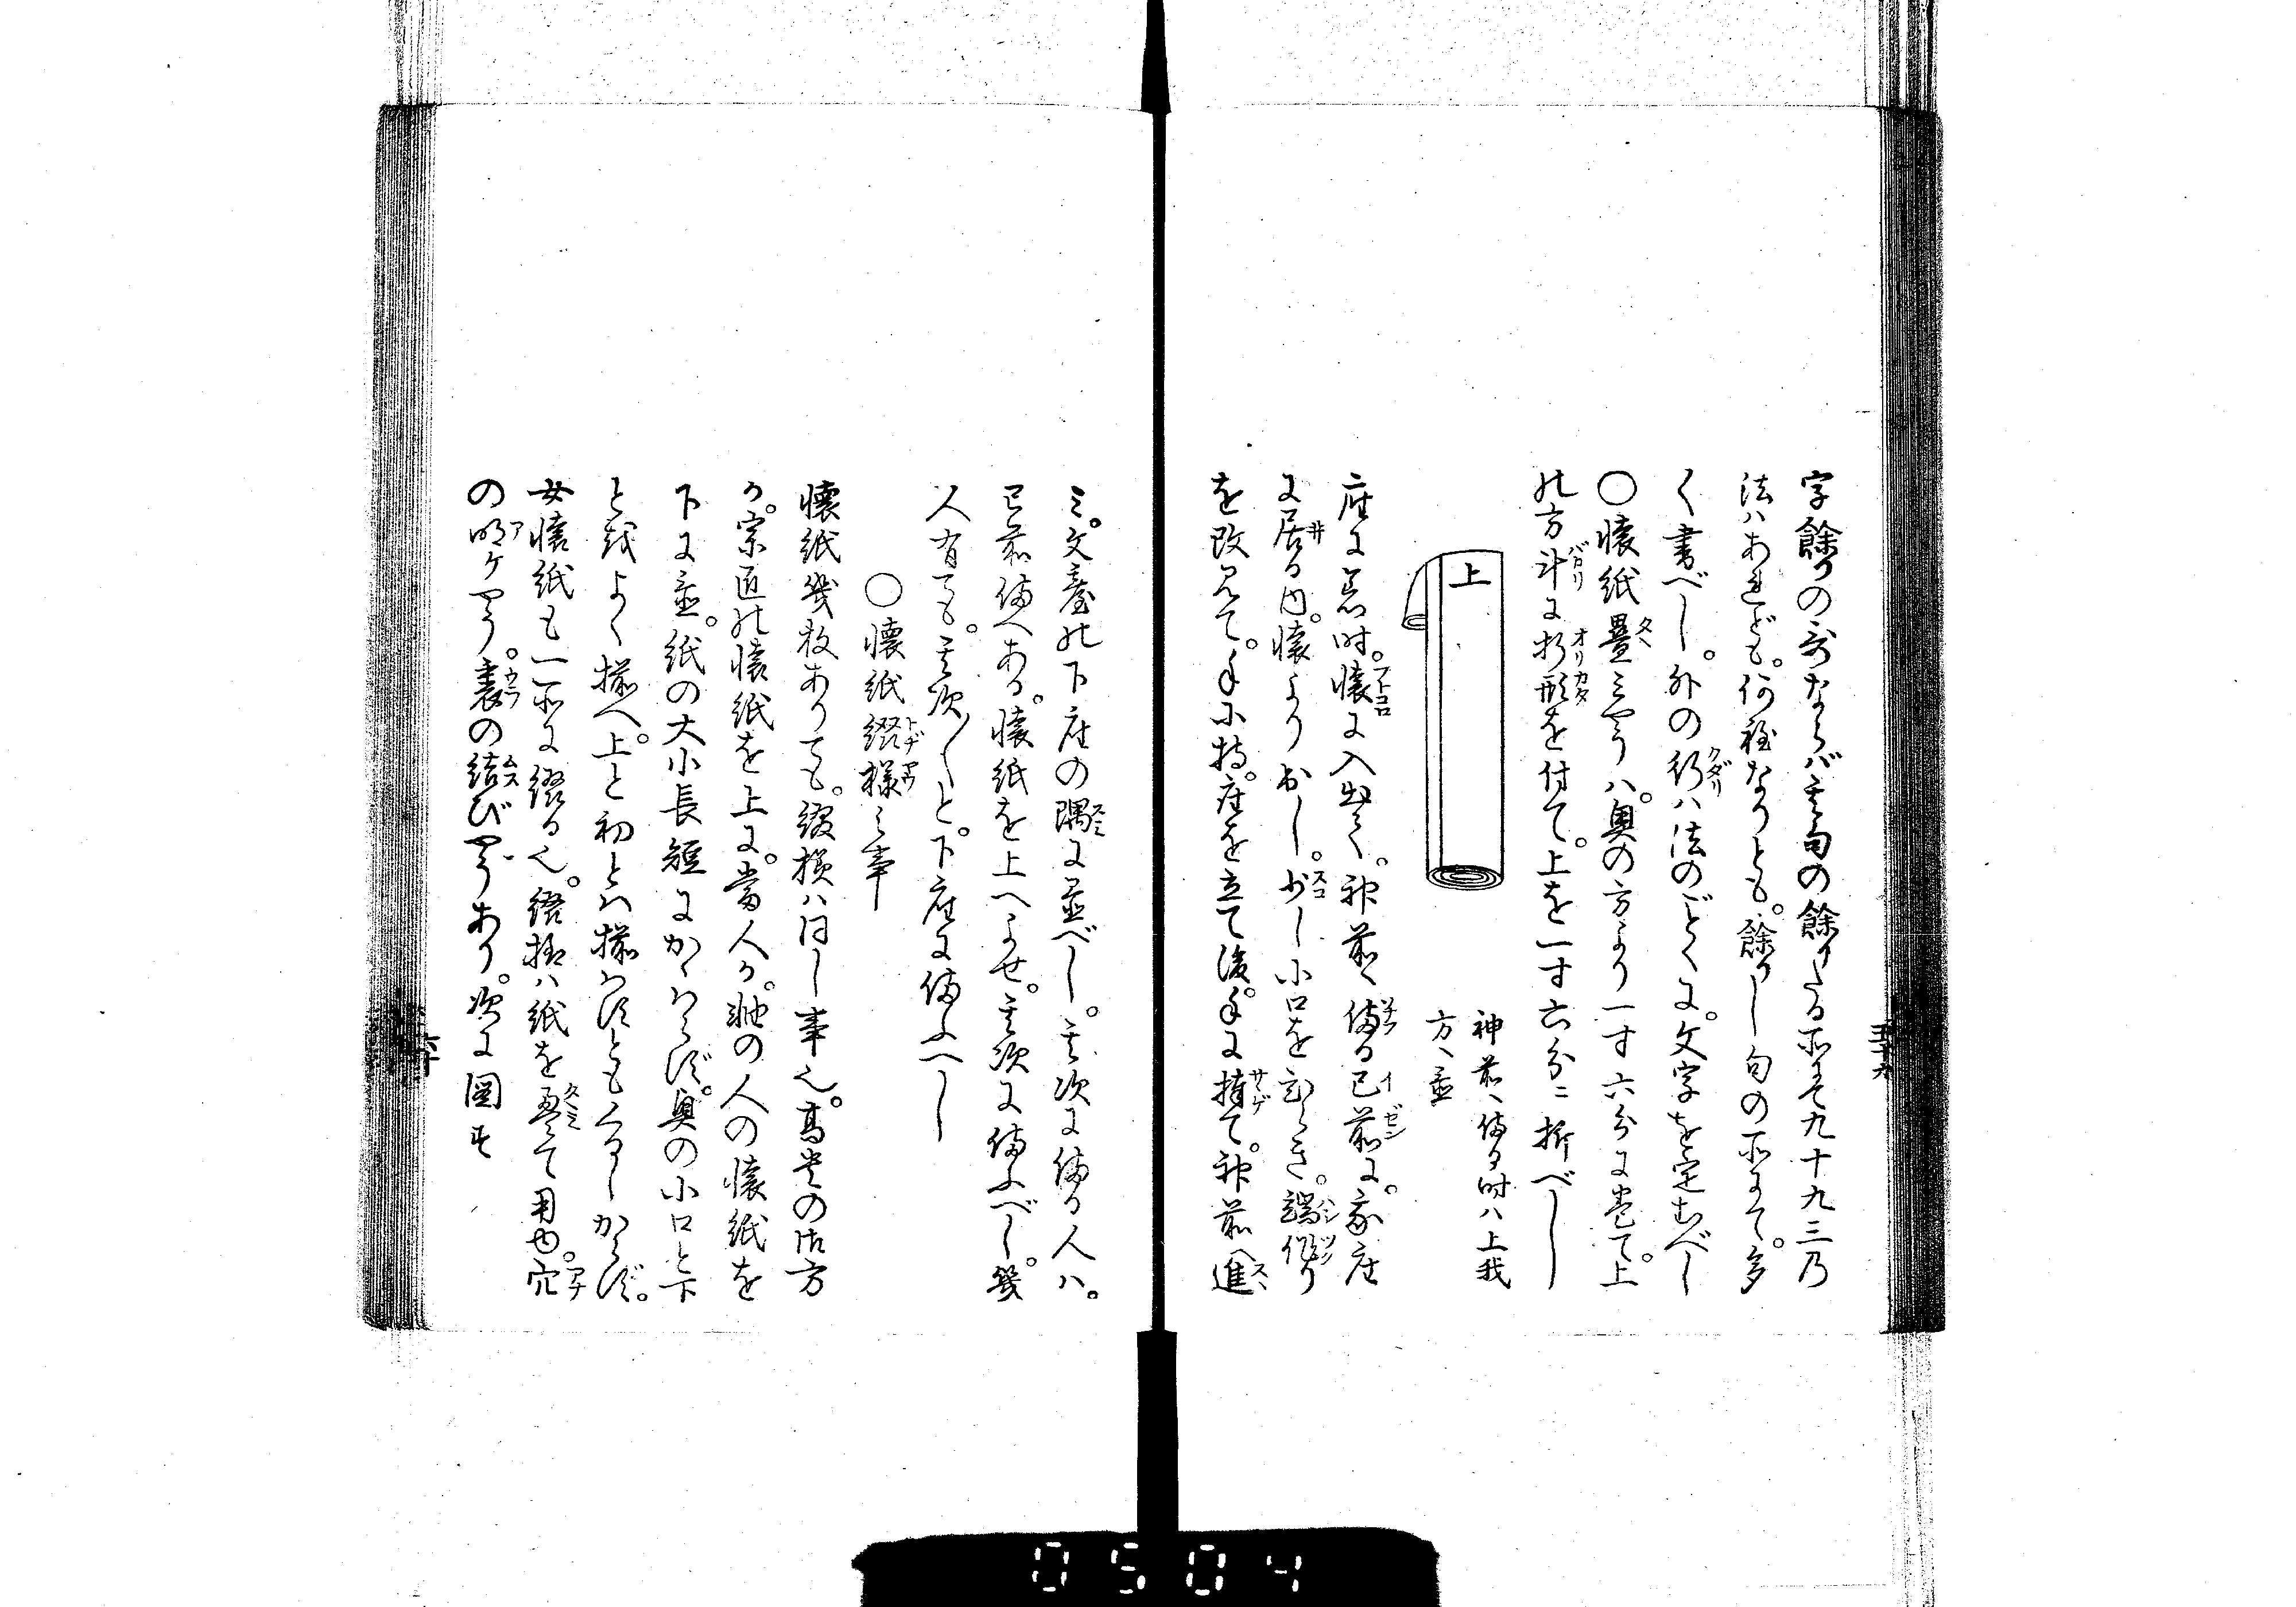 字餘りの哥ならバ其句の餘りたる所にて九十九三乃
法ハあれども。何程なりとも。餘りし句の所にて。多
く書べし。外の行ハ法のごとくに。文字を定むべし
○懐紙疊ミやうハ。奥の方より一寸六分に巻て。上
の方斗に折形を付て。上を一寸六分ニ折べし
上
神前へ備る時ハ上我
方へ並
座に着時。懐に入出て。神前へ備る已前に。我座
に居る内。懐より出し。少し小口をひらき。端作り
を改見て。手に持。座を立て後。手に捧て。神前へ進
ミ。文臺の下座の隅に並べし。其次に備る人ハ。
已前備へある。懐紙を上へよせ。其次に備ふべし。幾
人有ても。其次〱と。下座に備ふへし
○懐紙綴様之事
懐紙幾枚ありても。綴様ハ同し事也。高貴の御方
か。宗匠の懐紙を上に。當人か。軸の人の懐紙を
下に並。紙の大小長短にかゝわらず。奥の小口と下
とをよく揃へ。上と初とハ揃わずともくるしからず。
女懐紙も一所に綴る也。綴様ハ紙を疊て用也。穴
の明ケやう。裏の結びやうあり。次に圖す
五十九
六十
0504